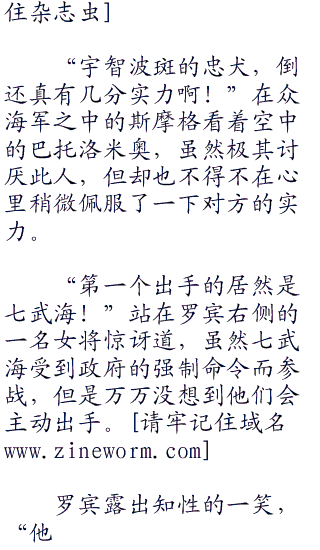 住杂志虫]
“宇智波斑的忠犬，倒
还真有几分实力啊！”在众
海军之中的斯摩格看着空中
的巴托洛米奥，虽然极其讨
厌此人，但却也不得不在心
里稍微佩服了一下对方的实
力。
“第一个出手的居然是
七武海！”站在罗宾右侧的
一名女将惊讶道，虽然七武
海受到政府的强制命令而参
战，但是万万没想到他们会
主动出手。[请牢记住域名
www.zineworm.com]
罗宾露出知性的一笑，
“他